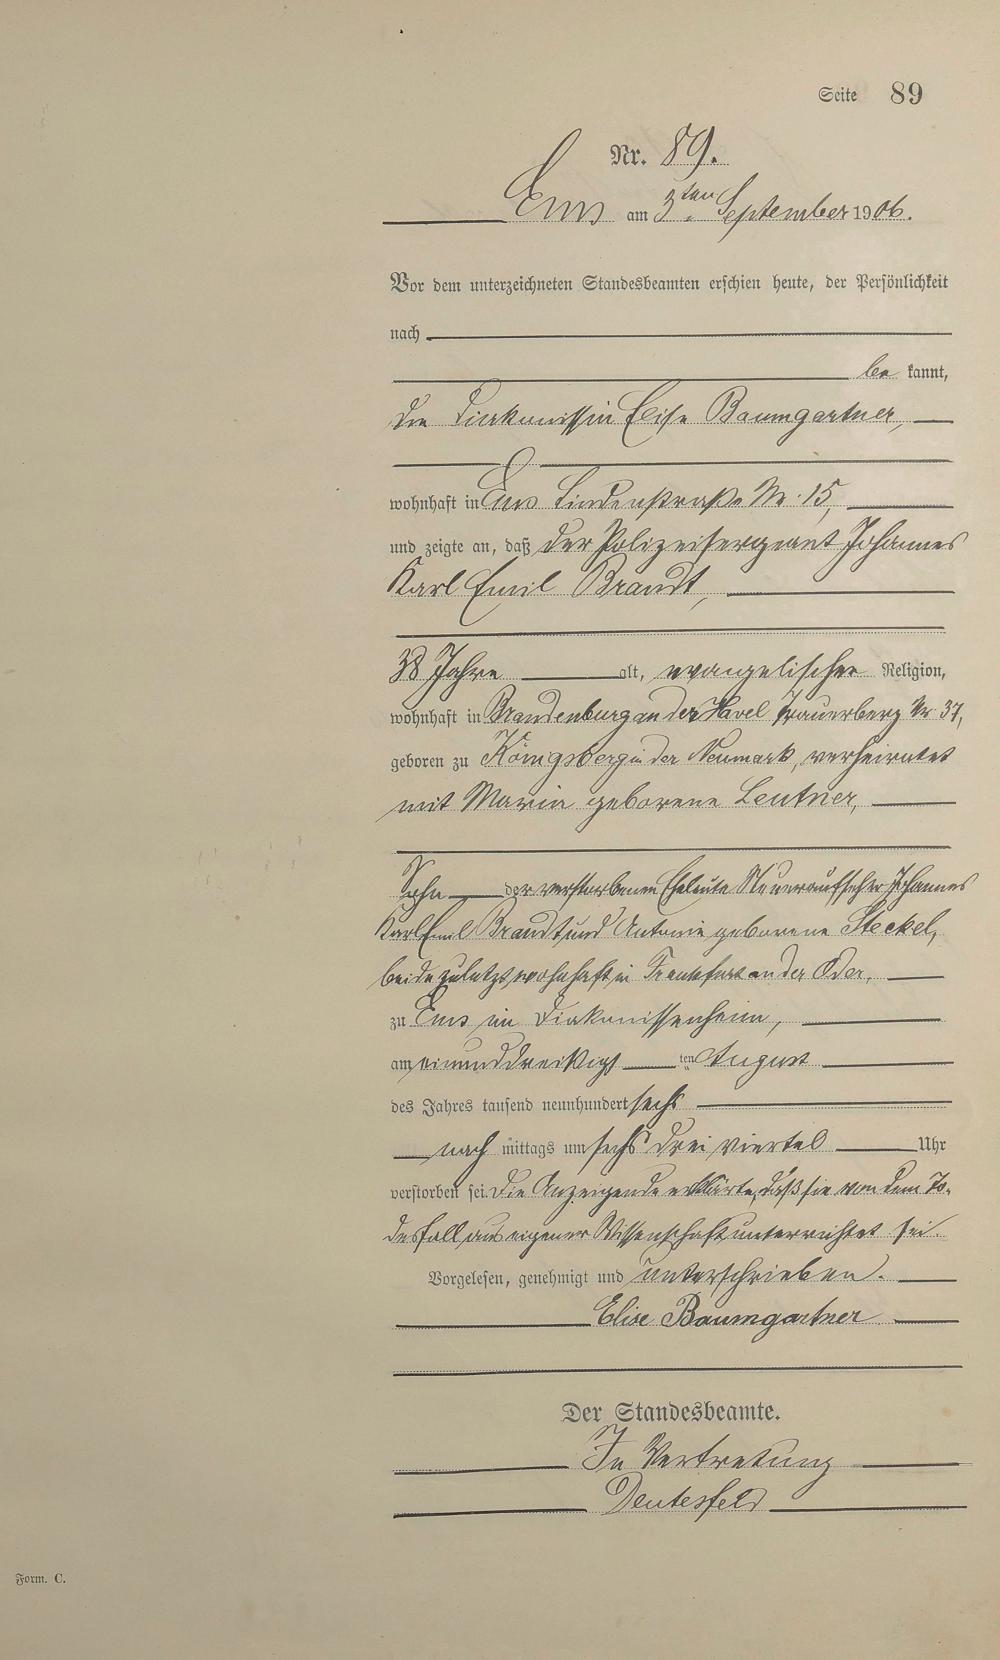 Seite 89
Nr. 89.
Ems am 3ten September 1906.
Vor dem unterzeichneten Standesbeamten erschien heute, der Persönlichkeit
nach
be kannt,
die Diakonissin Elise Baumgartner,
wohnhaft in Ems Lindenstraße Nr. 15,
und zeigte an, daß der Polizeisergeant Johannes
Karl Emil Brandt,
38 Jahre alt, evangelischer Religion,
wohnhaft in Brandenburg an der Havel Trauerberg Nr 37,
geboren zu Königsberg in der Neumark, verheiratet
mit Maria geborene Leutner,
Sohn der verstorbenen Eheleute Steueraufseher Johannes
Karl Emil Brandt und Antonie geborene Steckel,
beide zuletzt wohnhaft in Frankfurt an der Oder,
zu Ems im Diakonissenheim,
am einunddreißigs ten August
des Jahres tausend neunhundert sechs
nach mittags um sechs drei viertel Uhr
verstorben sei. Die Anzeigende erklärte, daß sie von dem To-
desfall aus eigener Wissenschaft unterrichtet sei.
Vorgelesen, genehmigt und unterschrieben.
Elise Baumgartner
Der Standesbeamte.
In Vertretung
Deutesfeld
Form. C.